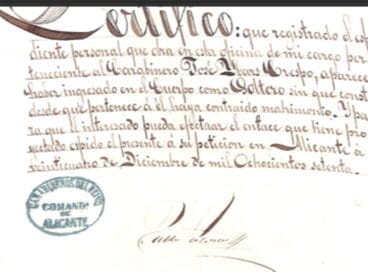 Certifico: que registrado el espe
diente personal que obra en esta oficina de mi cargo per
teneciente al Carabinero José Ybars Crespo, aparece
haber ingresado en el Cuerpo como Soltero sin que conste
desde que pertenece á él haya contraido matrimonio. Y pa
ra que el interesado pueda efectuar el enlace que tiene pro
yectado espido el presente á su peticion en Alicante á
veinticuatro de Diciembre de mil Ochocientos setenta.
CARABINEROS DEL REINO
COMANDª
DE
ALICANTE